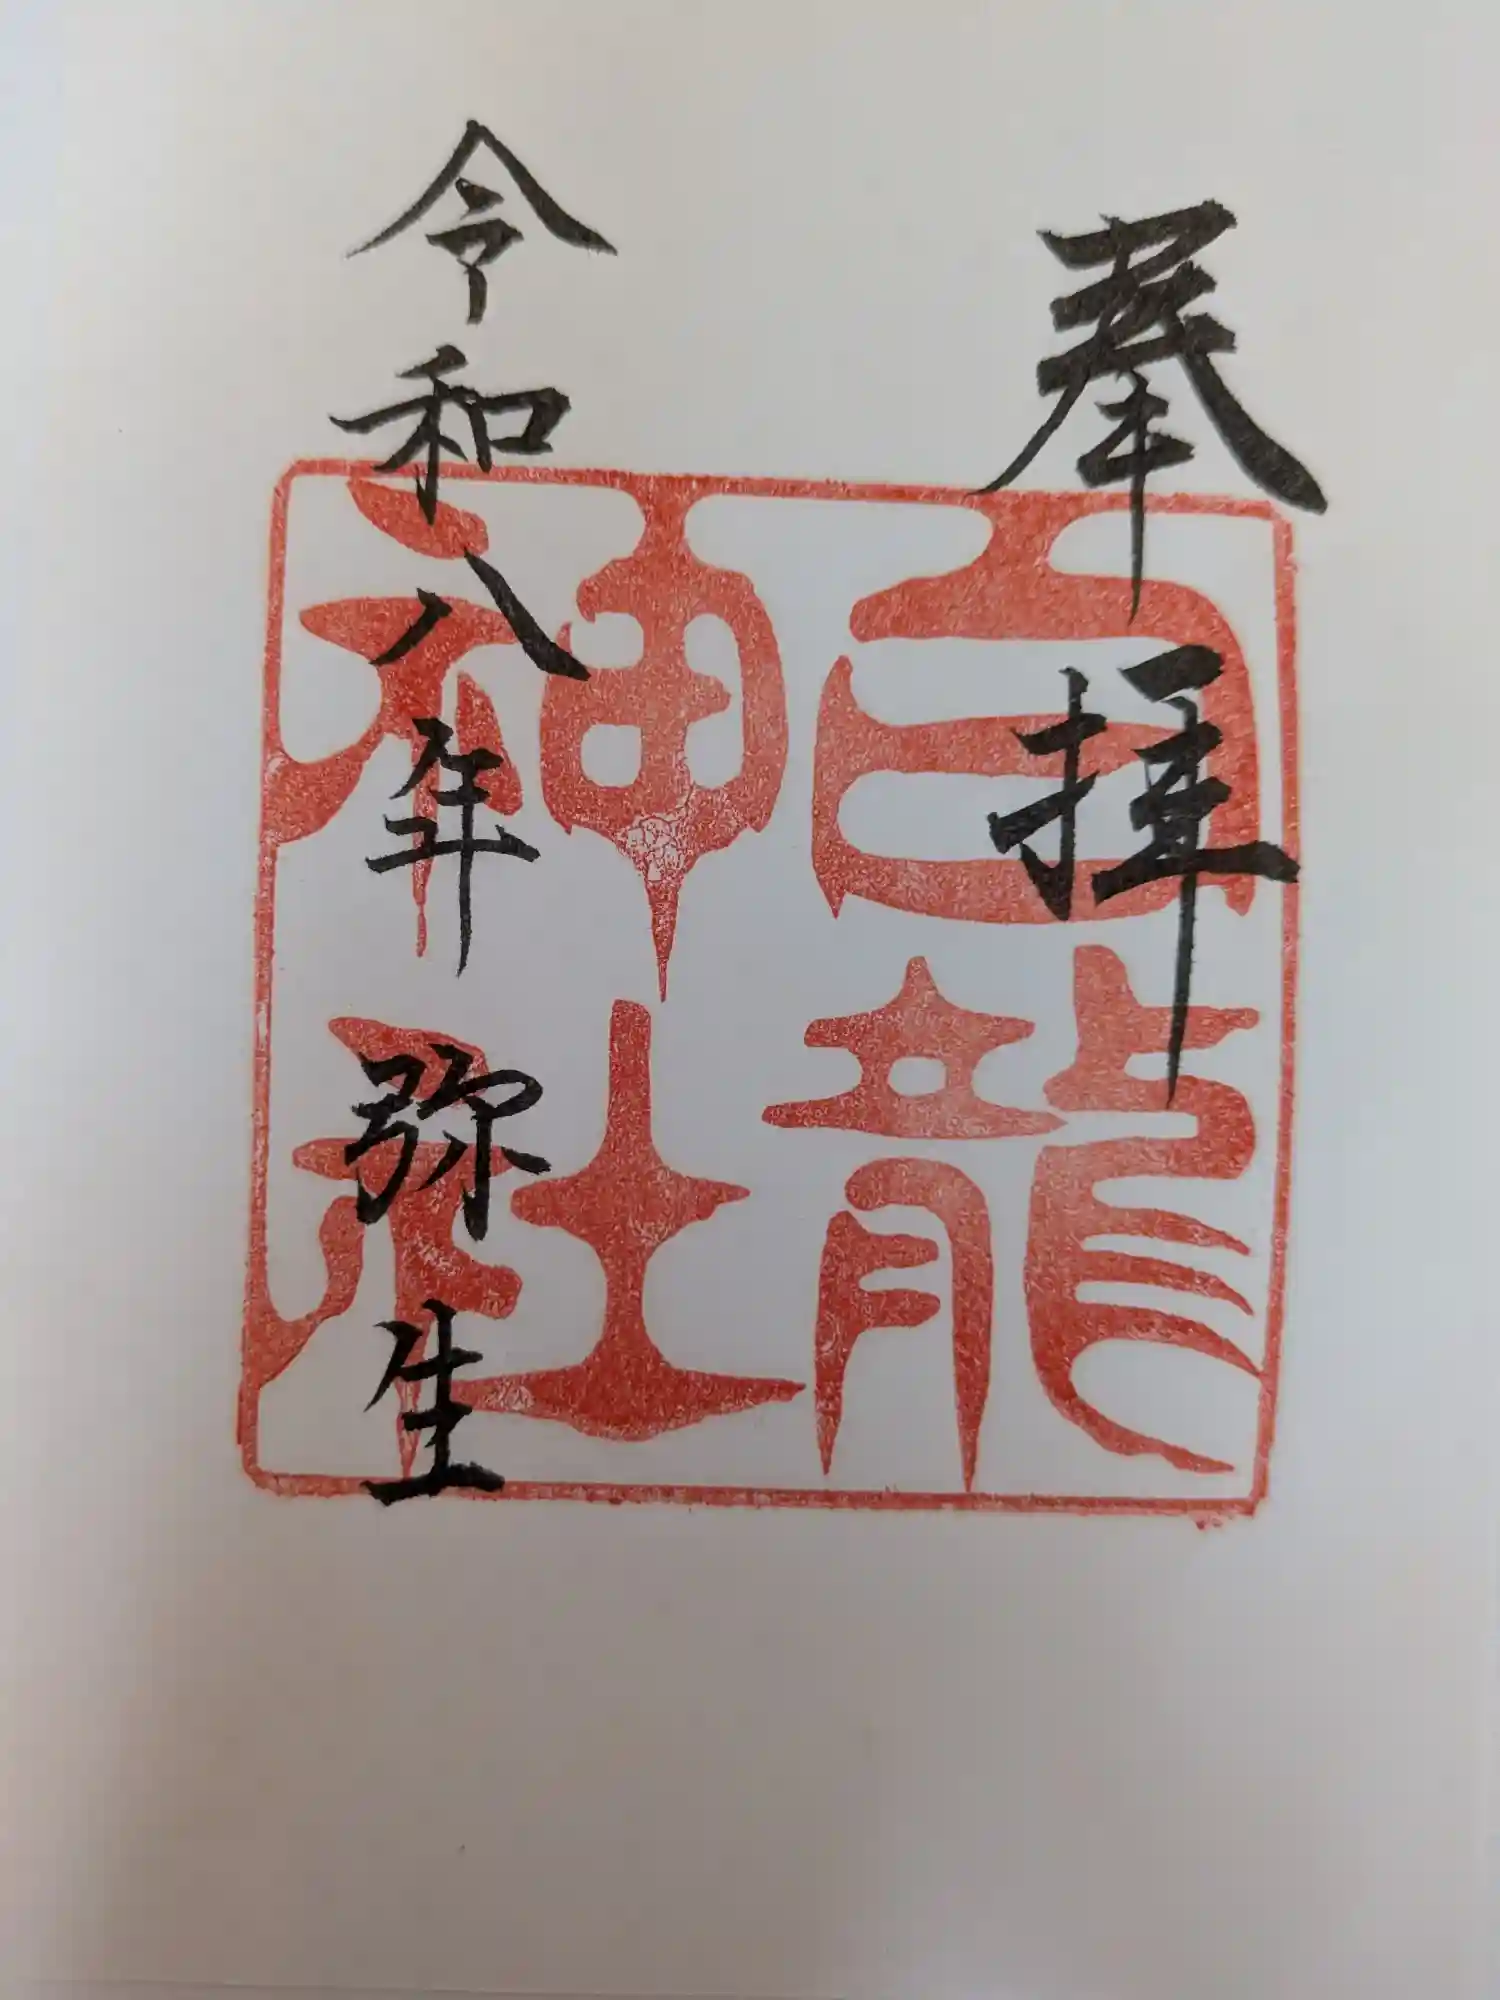 奉拝
白龍
神社
令和八年 弥生